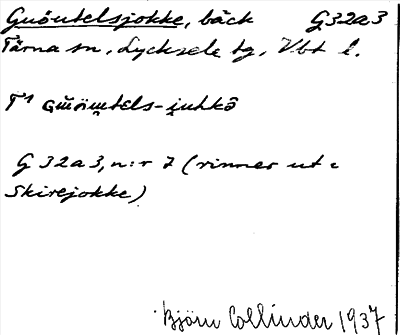 Guöutelsjokke, bäck G32a3
Tärna sn, Lycksele lg, Vbt l.
G32a3, n:r 7 (rinner ut i
Skirejokke)
Björn Collinder 1937